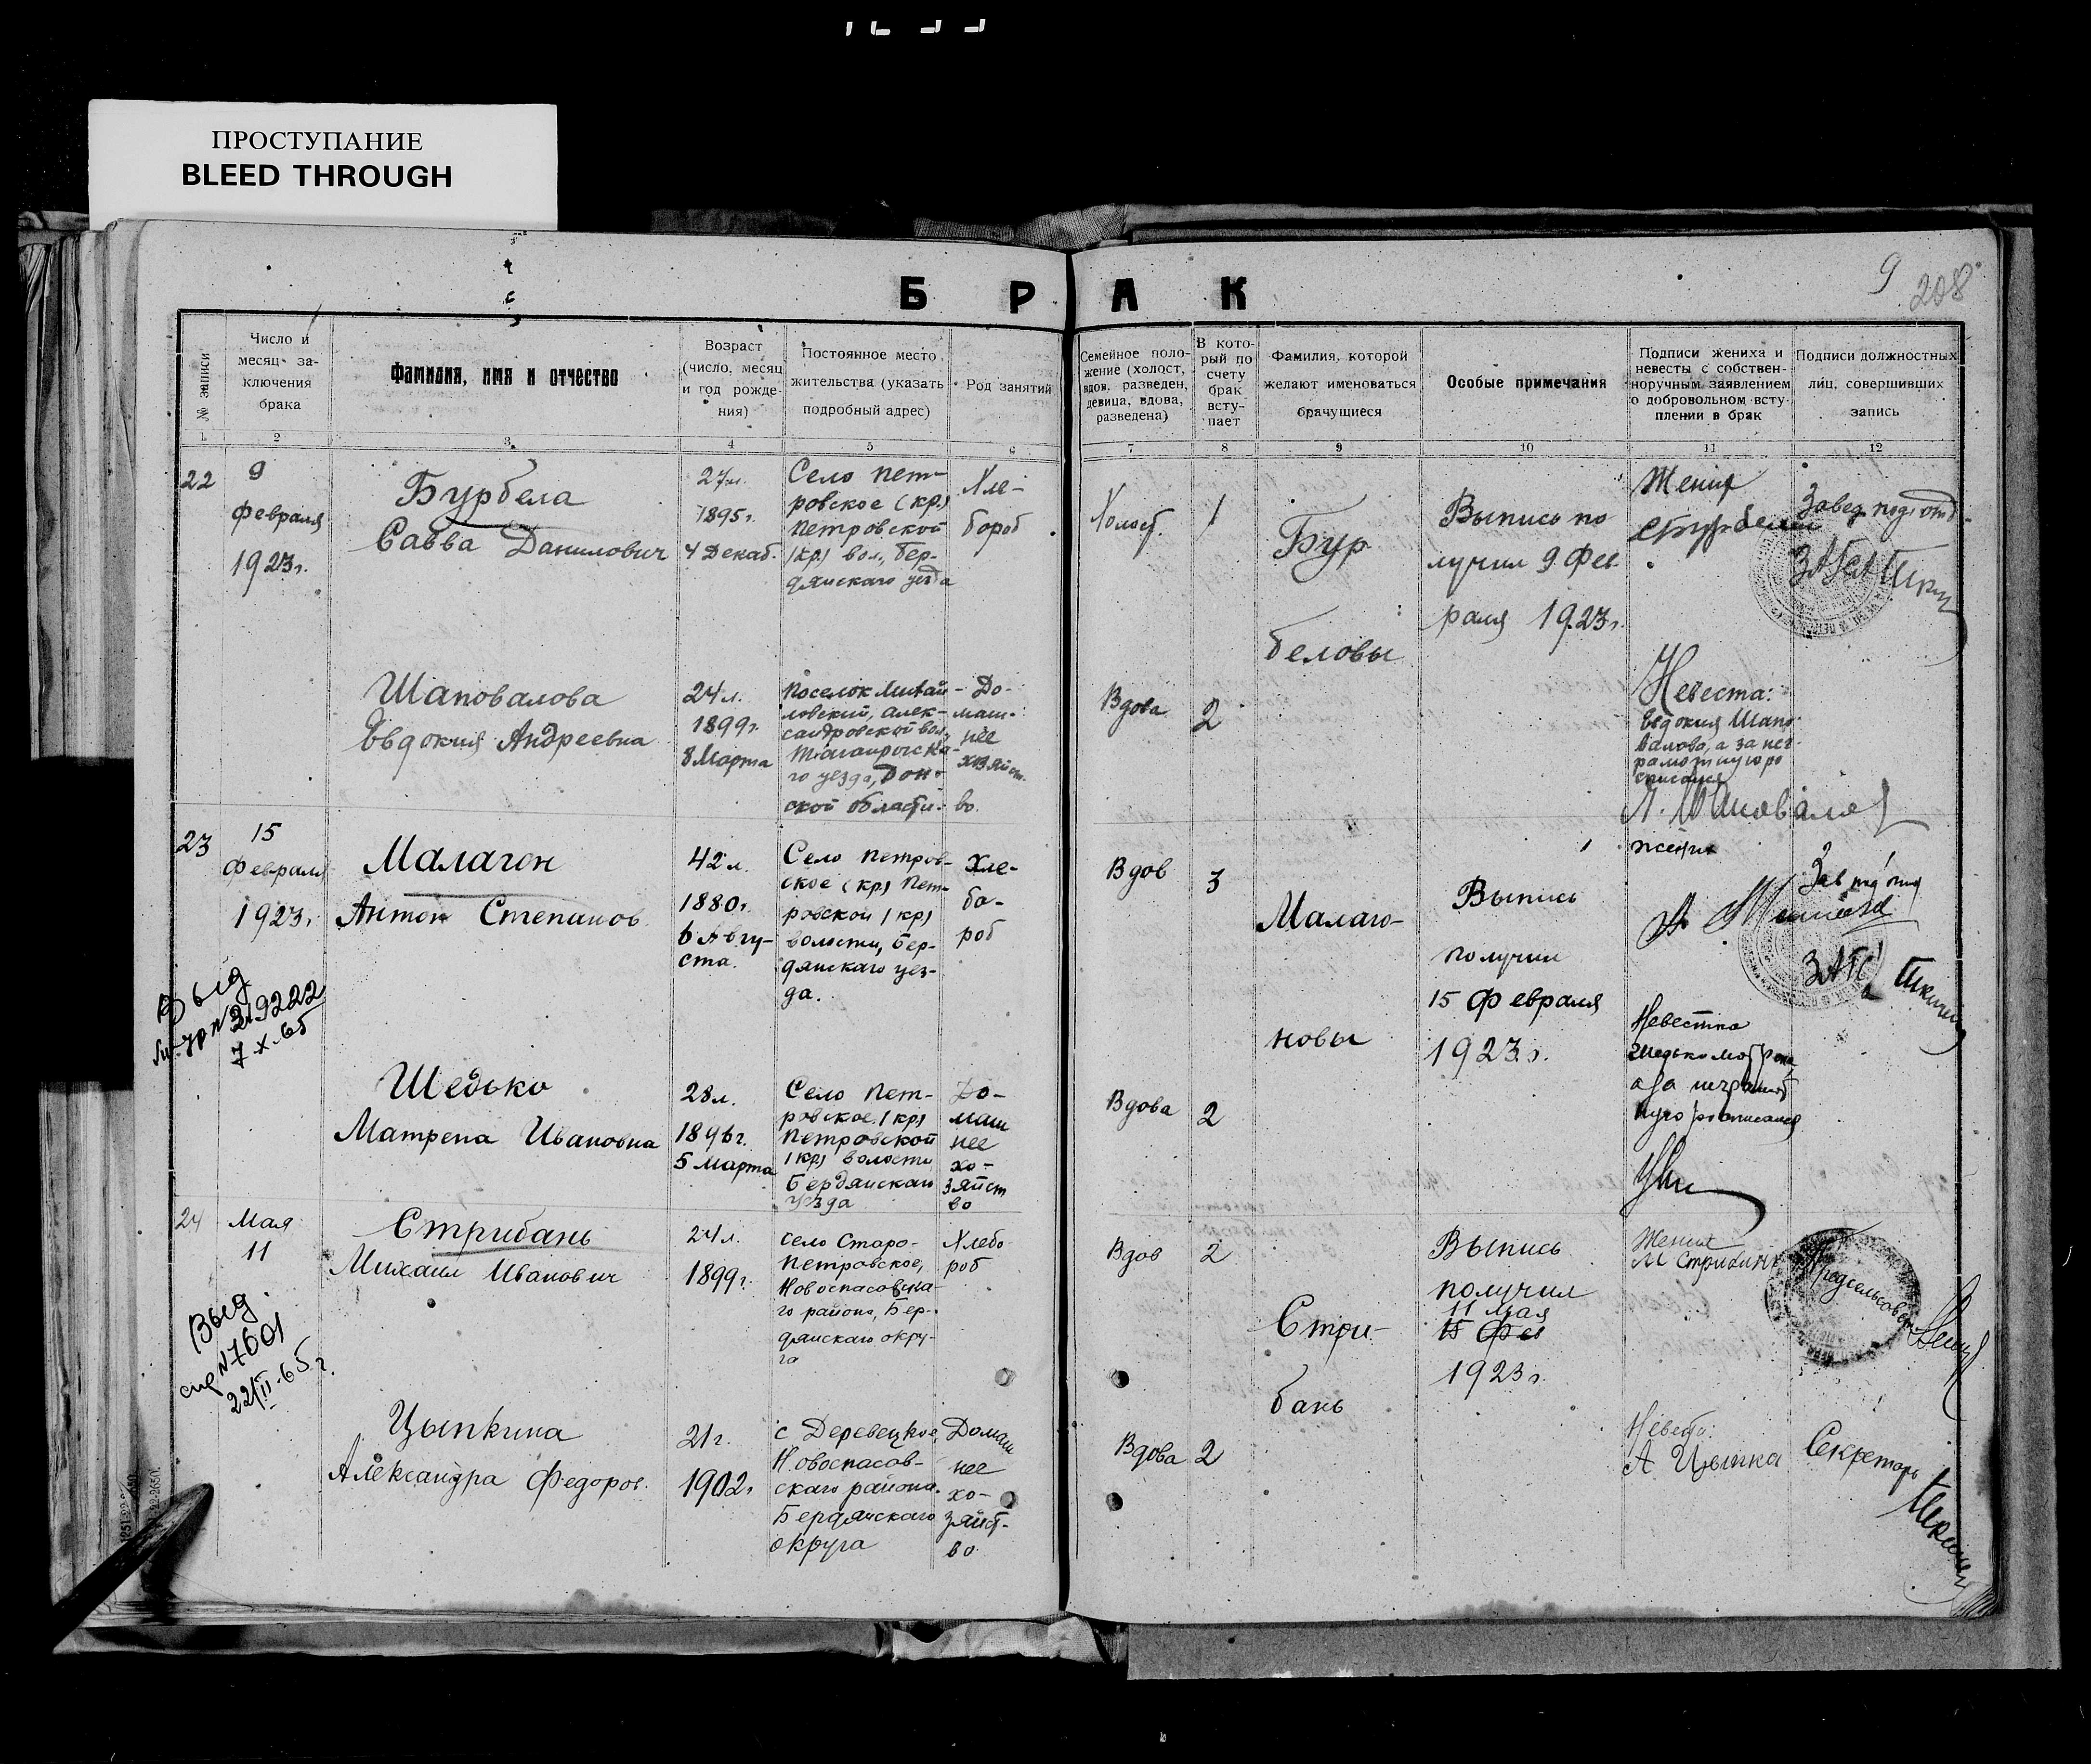 ПРОСТУПАНИЕ
BLEED THROUGH
БРАК
9
208
№ записи
Число и
месяц за-
ключения
брака
Фамилия, имя и отчество
Возраст
(число, месяц
и год рожде-
ния)
Постоянное место
жительства (указать
подробный адрес)
Род занятий
Семейное поло-
жение (холост,
вдов, разведен,
девица, вдова,
разведена)
В кото-
рый по
счету
брак
всту-
пает
Фамилия, которой
желают именоваться
брачущиеся
Особые примечания
Подписи жениха и
невесты с собствен-
норучным заявлением
о добровольном всту-
плении в брак
Подписи должностных
лиц, совершивших
запись
1 2 3 4 5 6 7 8 9 10 11 12
22
9
февраля
1923г.
Бурбела
Савва Данилович
27 л.
1895г.
4 Декаб.
Село Пет-
ровское (кр)
Петровской
(кр) вол., Бер-
дянскаго уезда
Хле-
бороб
Холост.
1
Бур
беловы
Выпись по
лучил 9 Фев
раля 1923г.
Жених
Завед. подотд.
ЗАГСА
Шаповалова
Евдокия Андреевна
24 л.
1899г.
8 Марта
Поселок Михай-
ловский, Алек-
сандровской вол.,
Таганрогска-
го уезда, Дон-
ской области.
До-
маш-
нее
хозяйст-
во.
Вдова
2
Невеста:
Евдокия Шапо-
валова, а за нег-
рамотную ро
списался
23
15
февраля
1923г.
Малагон
Антон Степанов.
42 л.
1880г.
6 Авгу-
ста.
Село Петров-
ское (кр) Пет-
ровской (кр)
волости, Бер-
дянскаго уез-
да.
Хле-
бо-
роб
Вдов
3
Малаго-
новы
Выпись
получил
15 Февраля
1923г.
жених
Зав под отд
ЗАГС
Выд
№ 219222
7-X-65
Шедько
Матрена Ивановна
28 л.
1896г.
5 Марта
Село Пет-
ровское (кр)
Петровской
(кр) волости
Бердянскаго
уезда
До-
маш
нее
хо-
зяйст
во
Вдова
2
Невестка
Шедько Мотрона,
а за неграмот
ную росписался
24
Мая
11
Стрибань
Михаил Иванович
24 л.
1899г.
село Старо-
Петровское,
Новоспасовска-
го района, Бер-
дянскаго окру-
га
Хлебо
роб
Вдов
2
Стри-
бань
Выпись
получил
11 Мая
15 Фев
1923г.
Жених
М Стрибань
Предсельсовета
Выд.
№7601
22/II-65г.
Цыпкина
Александра Федоров.
21г.
1902г
с Деревецкое,
Новоспасов-
скаго района.
Бердянскаго
округа
Домаш
нее
хо-
зяйст-
во
Вдова
2
Невеста:
А Цыпка
Секретарь